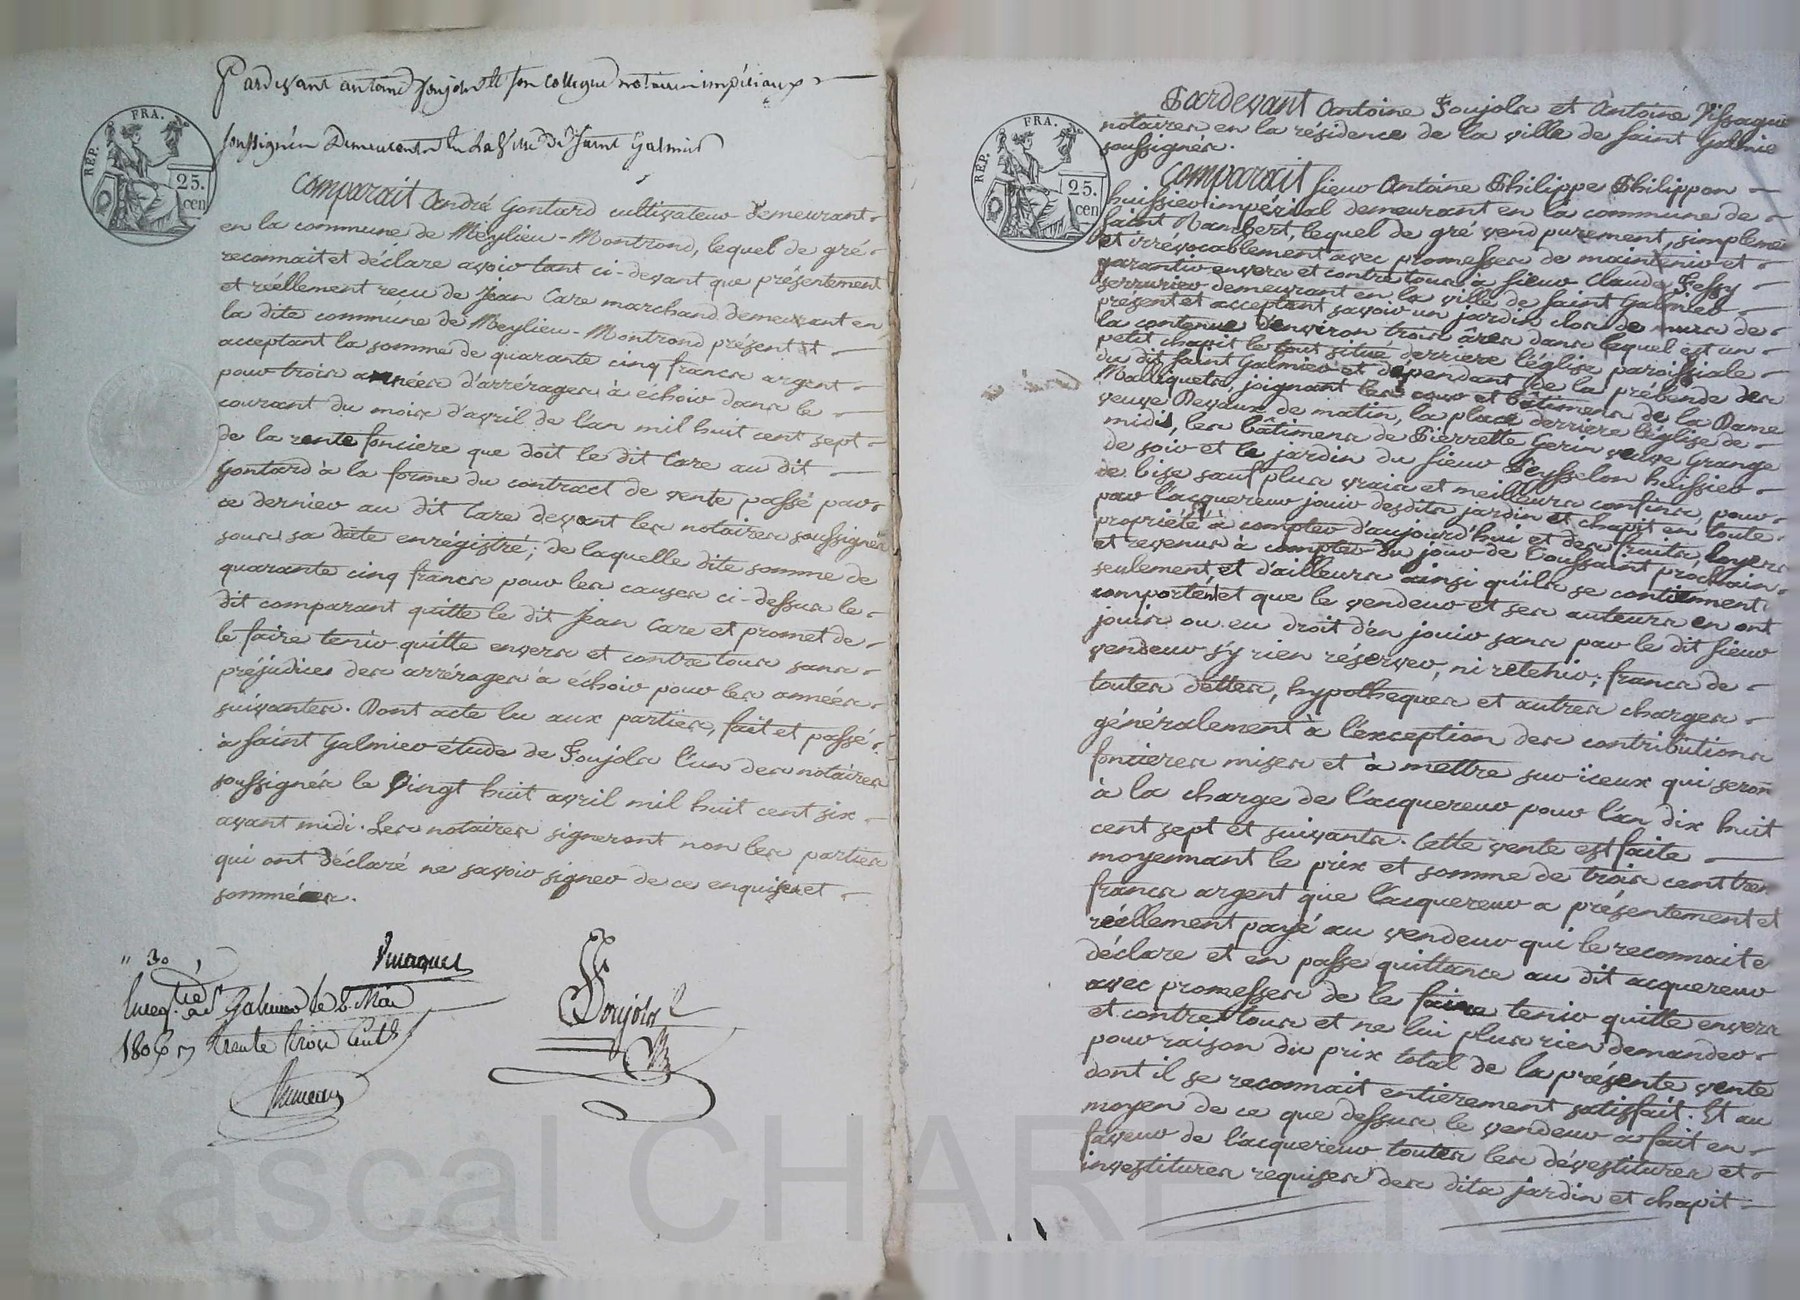 Pardevant antoine Foujols et son collegue notaires impériaux
soussignés Demeurants en La Ville De Saint Galmier
RÉP. FRA.
25.
cen
Comparait André Gontard cultivateur demeurant
en la commune de Meylieu-Montrond, lequel de gré
reconnait et déclare avoir tant ci-devant que présentement
et réellement reçu de Jean Care marchand demeurant en
la dite commune de Meylieu-Montrond présent et
acceptant la somme de quarante cinq francs argent
pour trois années d'arrérages à échoir dans le
courant du mois d'avril de l'an mil huit cent sept
de la rente fonciere que doit le dit Care au dit
Gontard à la forme du contract de vente passé par
ce dernier au dit Care devant les notaires soussignés
sous sa date enrégistré; de laquelle dite somme de
quarante cinq francs pour les causes ci-dessus le
dit comparant quitte le dit Jean Care et promet de
le faire tenir quitte envers et contre tous sans
préjudices des arrérages à échoir pour les années
suivantes. Dont acte lu aux parties, fait et passé
à Saint Galmier étude de Foujols l'un des notaires
soussignés le Vingt huit avril mil huit cent six
avant midi. Les notaires signeront non les parties
qui ont déclaré ne savoir signer de ce enquises et
sommées.
" 30
Vissaguet
Foujols
Enreg. à St Galmier le 8 Mai
1806 trente trois Cent
RÉP. FRA.
25.
cen
Pardevant Antoine Foujols et Antoine Vissaguet
notaires en la résidence de la ville de Saint Galmie
soussignés.
Comparait sieur Antoine Philippe Philippon
huissier impérial demeurant en la commune de
Saint Rambert, lequel de gré vend purement, simpleme
et irrévocablement avec promesses de maintenir et
garantir envers et contre tous à sieur Claude Fessy
serrurier demeurant en la ville de Saint Galmier
présent et acceptant savoir un jardin clos de murs de
la contenue d'environ trois âres dans lequel est un
petit chapit le tout situé derriere l'église paroissiale
du dit Saint Galmier et dépendant de la prébende des
Malliquets, joignant les cour et bâtimens de la Dame
veuve Devaux de matin, la place derriere l'église de
midi, les bâtimens de Pierrette Gerin veuve Grange
de soir et le jardin du sieur Peysselon huissier
de bise sauf plus vrais et meilleurs confins, pour
par l'acquereur jouir desdits jardin et chapit en toute
propriété à compter d'aujourd'hui et des fruits, loyers
et revenus à compter du jour de Toussaint prochain
seulement, et d'ailleurs ainsi qu'ils se contiennent
comportent et que le vendeur et ses auteurs en ont
jouis ou eu droit d'en jouir sans par le dit sieur
vendeur s'y rien réserver, ni retenir; francs de
toutes dettes, hypotheques et autres charges
généralement à l'exception des contributions
foncieres mises et à mettre sur iceux qui seron
à la charge de l'acquereur pour l'an dix huit
cent sept et suivants. Cette vente est faite
moyennant le prix et somme de trois cent tren
francs argent que l'acquereur a présentement et
réellement payé au vendeur qui le reconnait
déclare et en passe quittance au dit acquereur
avec promesses de le faire tenir quitte envers
et contre tous et ne lui plus rien demander
pour raison du prix total de la présente vente
dont il se reconnait entièrement satisfait. Et au
moyen de ce que dessus le vendeur a fait en
faveur de l'acquereur toutes les dévestitures et
investitures requises des dits jardin et chapit
Pascal CHAREYRON